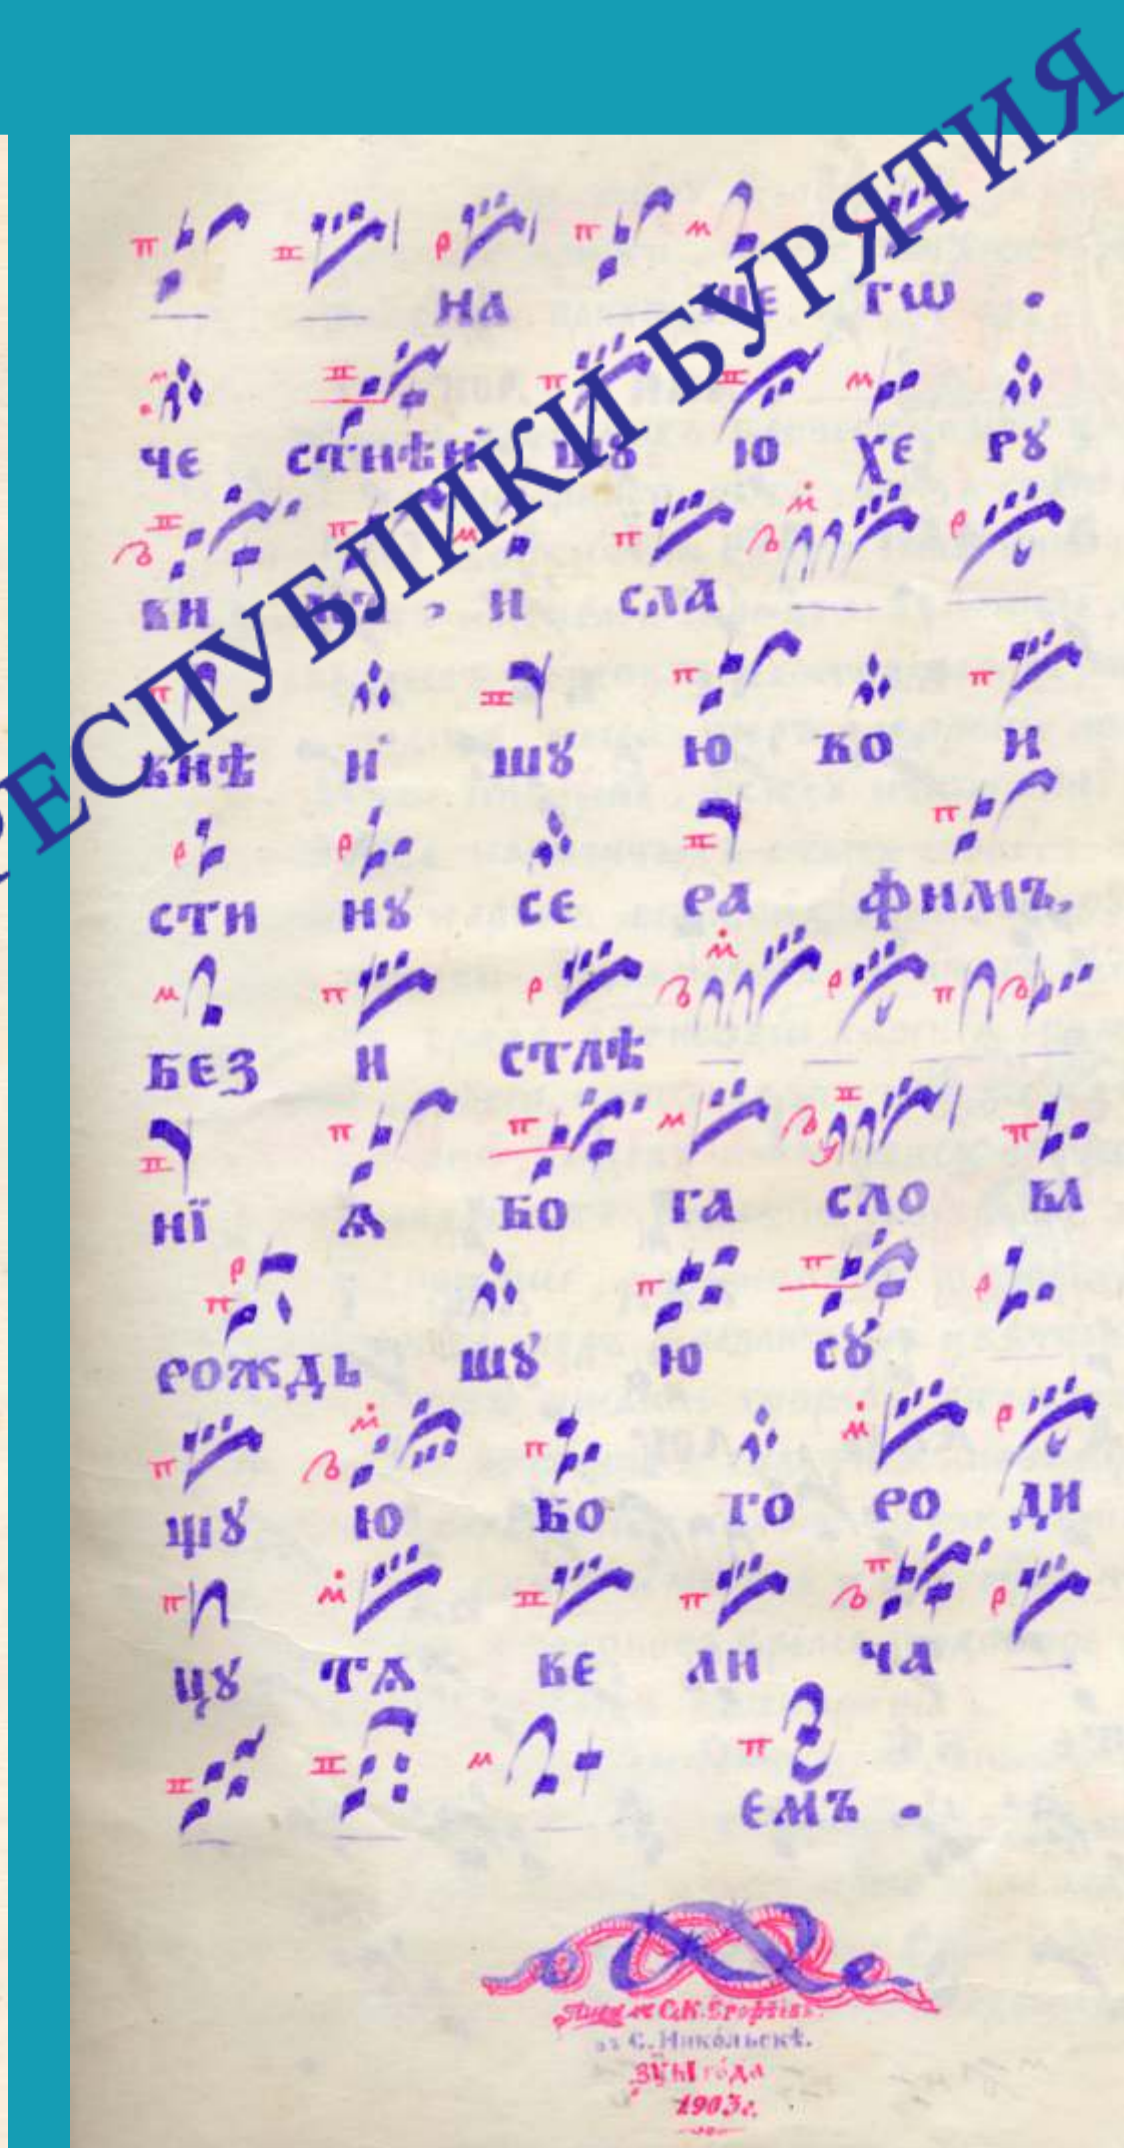 РЕСПУБЛИКИ БУРЯТИЯ
НА ШЕ ГѠ .
ЧЕ СТНѢЙ ШꙊ Ю ХЕ РꙊ
ВИ МЪ , И СЛА
ВНѢ Й ШꙊ Ю ВО И
СТИ НꙊ СЕ РА ФИМЪ,
БЕЗ И СТЛѢ
НЇ Ѧ БО ГА СЛО ВА
РОЖДЬ ШꙊ Ю СꙊ
ЩꙊ Ю БО ГО РО ДИ
ЦꙊ ТѦ ВЕ ЛИ ЧА
ЕМЪ .
С.К.
въ С. Никольскѣ.
года
1903г.